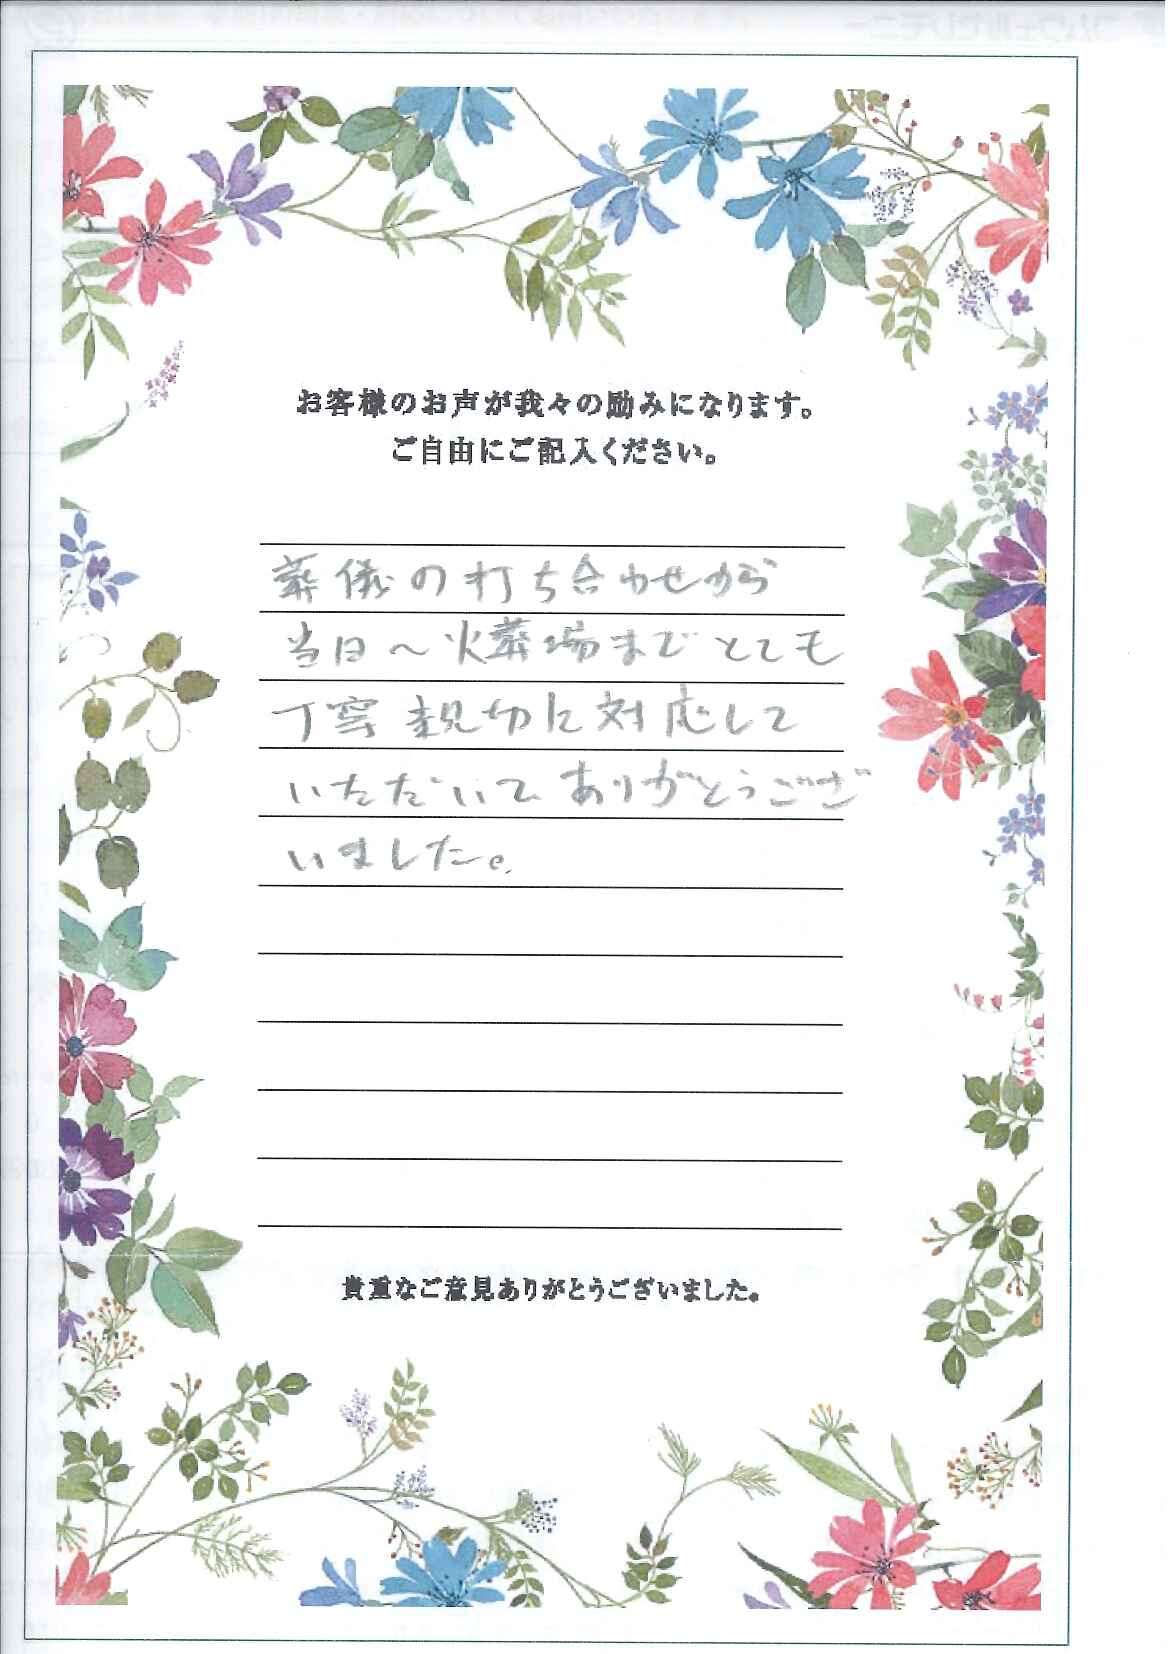 お客様のお声が我々の励みになります。
ご自由にご記入ください。
葬儀の打ち合わせから
当日～火葬場までとても
丁寧親切に対応して
いただいて、ありがとうござ
いました。
貴重なご意見ありがとうございました。